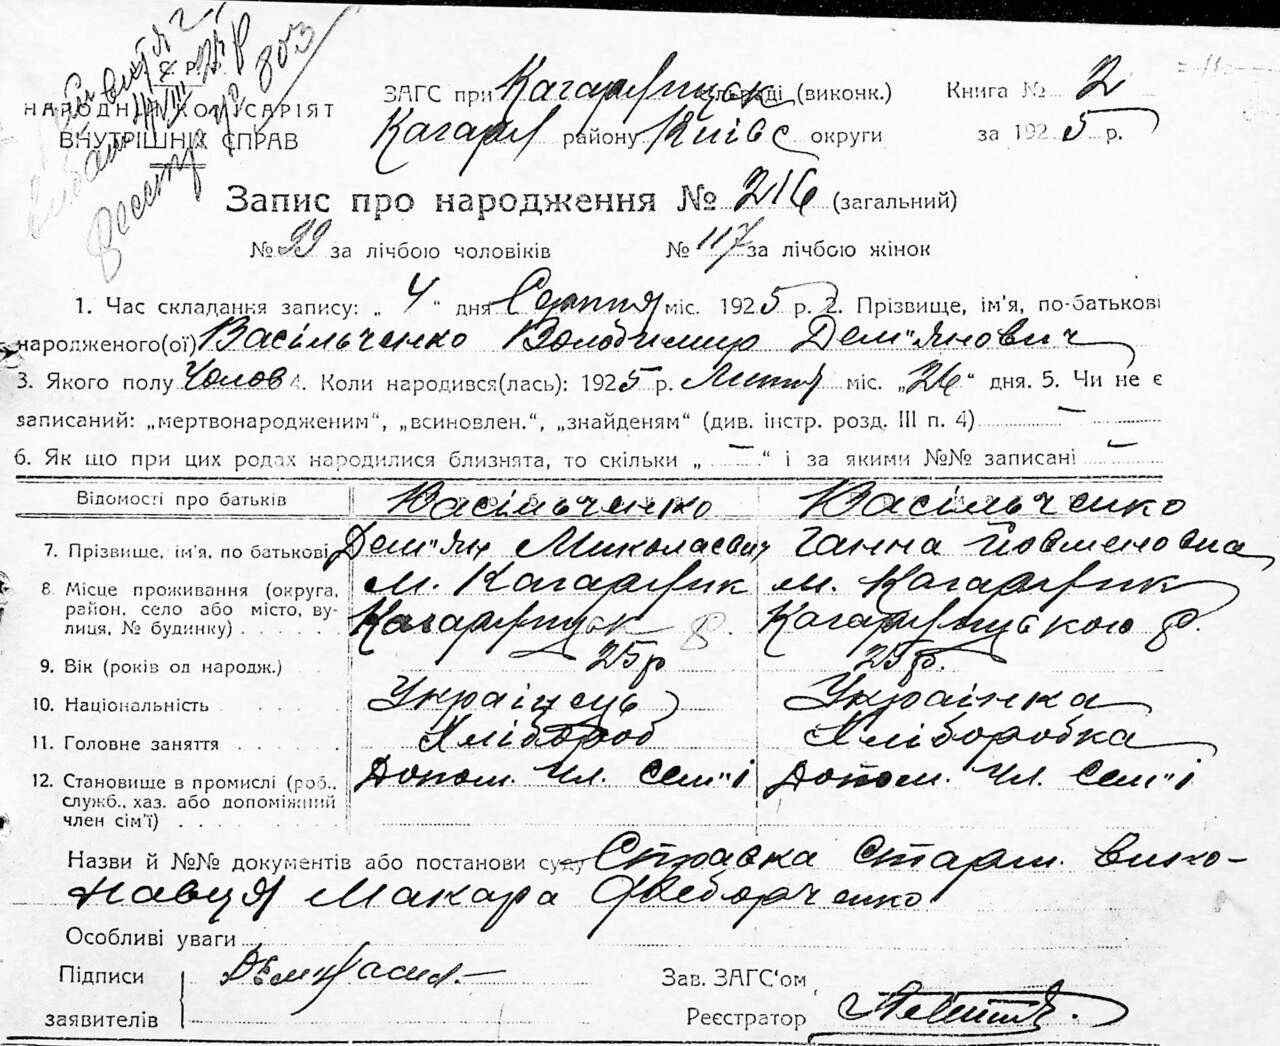 У. С. Р. Р.
НАРОДНІЙ КОМІСАРІЯТ
ВНУТРІШНІХ СПРАВ
реєстр № 803
ЗАГС при Кагарлицьк сільраді (виконк.) Книга № 2
Кагарл району Київс округи за 1925 р.
Запис про народження № 216 (загальний)
№ 99 за лічбою чоловіків № 117 за лічбою жінок
1. Час складання запису: „ 4 “ дня Серпня міс. 1925 р. 2. Прізвище, ім'я, по-батькові
народженого(ої) Васільченко Володимир Дем"янович
3. Якого полу Чолов 4. Коли народився(лась): 1925 р. Липня міс. „26“ дня. 5. Чи не є
записаний: „мертвонародженим“, „всиновлен.“, „знайденям“ (див. інстр. розд. III п. 4) —
6. Як що при цих родах народилися близнята, то скільки „ — “ і за якими №№ записані —
Відомості про батьків Васільченко Васільченко
7. Прізвище, ім'я, по батькові Дем"ян Миколаевич Ганна Йовменовна
8. Місце проживання (округа, м. Кагарлик м. Кагарлик
район, село або місто, ву-
лиця, № будинку) Кагарлицьк Кагарлицькою р.
9. Вік (років од народж.) 25 р 25 р.
10. Національність Українець Українка
11. Головне заняття Хлібороб Хліборобка
12. Становище в промислі (роб., Допом. Чл. Сем"і Допом. Чл. Сем"і
служб., хаз. або допоміжний
член сім'ї)
Назви й №№ документів або постанови суду Справка Старш. вико-
навця Макара Федорченко
Особливі уваги
Підписи Зав. ЗАГС'ом
заявителів Реєстратор